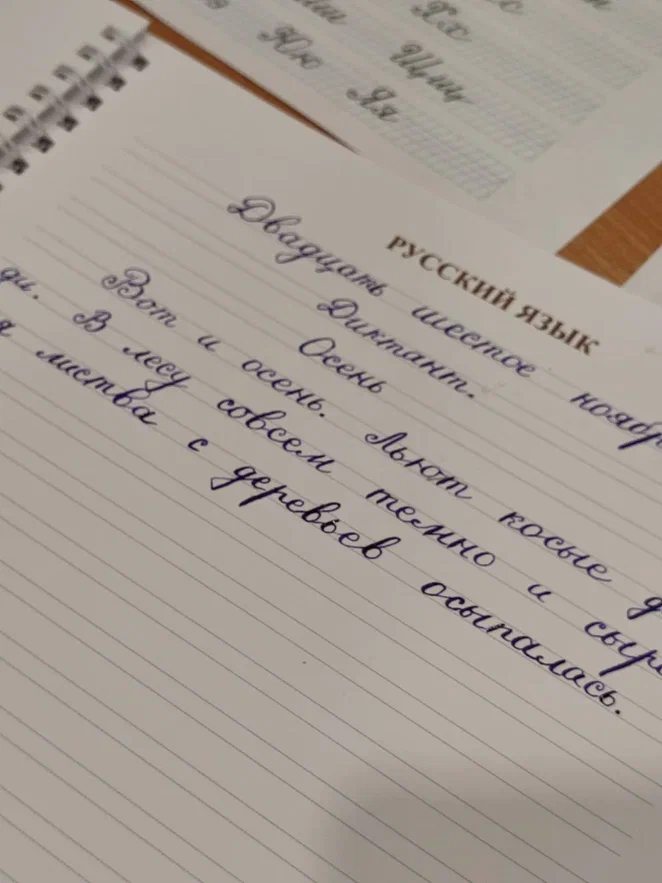 Хх
Щщ
Юю
Яя
РУССКИЙ ЯЗЫК
Двадцать шестое ноябр
Диктант.
Осень
Вот и осень. Льют косые д
ди. В лесу совсем темно и сыр
я листва с деревьев осыпалась.